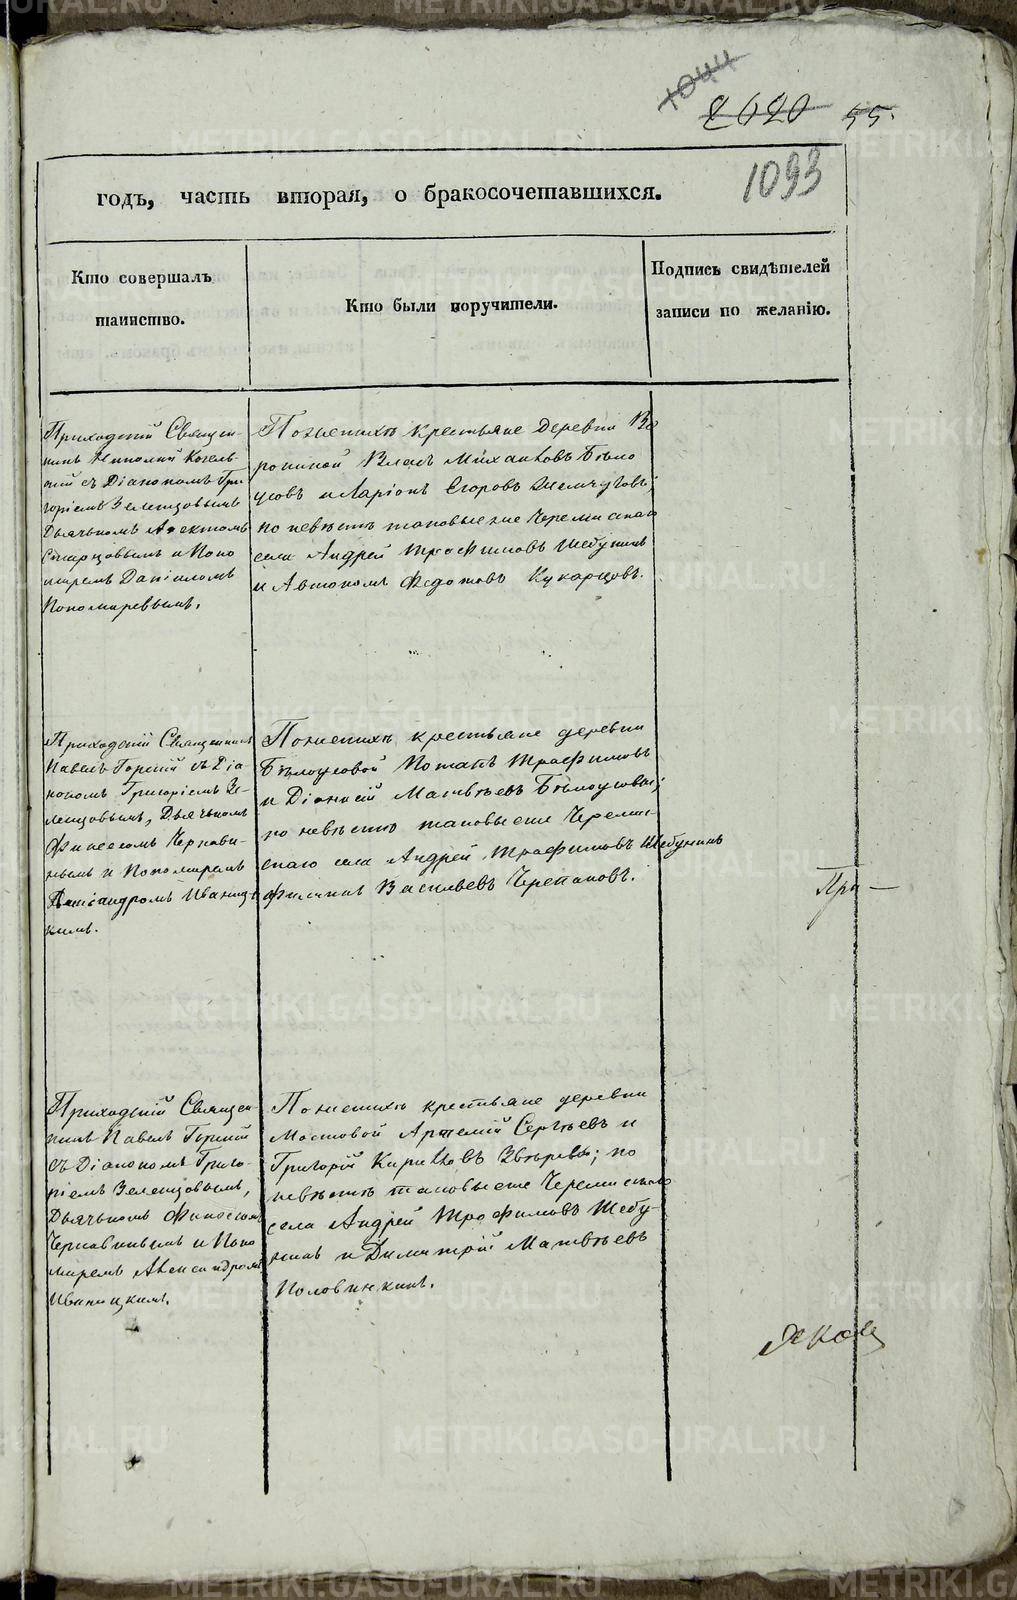 1044
2020 55.
1093
годъ, часть вторая, о бракосочетавшихся.
Кто совершалъ
таинство.
Кто были поручители.
Подпись свидѣтелей
записи по желанію.
Приходскій Священ-
никъ Николай
съ Діакономъ Гри
горіемъ Зеленцовымъ
Дьячкомъ
Старцовымъ и Поно
маремъ Даніиломъ
Пономаревымъ.
По женихѣ крестьяне деревни Во
рониной Власъ Михайловъ Бѣло
усовъ и Ларіонъ Егоровъ Жемчуговъ;
по невѣстѣ таковые же Черемискаго
села Андрей Трофимовъ Шебунинъ
и Автономъ Федотовъ Кукарцовъ.
Приходскій Священникъ
Павелъ Горный съ Діа
кономъ Григоріемъ Зе-
ленцовымъ, Дьячкомъ
Финеесомъ Чернави-
нымъ и Пономаремъ
Александромъ Иваниц
кимъ.
По женихѣ крестьяне деревни
Бѣлоусовой Потапъ Трофимовъ
и Діонисій Матвѣевъ Бѣлоусовы;
по невѣстѣ таковые же Черемис-
скаго села Андрей Трофимовъ Шебунинъ
Филиппъ Васильевъ Черепановъ.
При—
Приходскій Священ-
никъ Павелъ Горный
съ Діакономъ Григо-
ріемъ Зеленцовымъ,
Дьячкомъ Финеесомъ
Чернавинымъ и Поно
маремъ Александромъ
Иваницкимъ.
По женихѣ крестьяне деревни
Мостовой Артемій Сергѣевъ и
Григорій Кириловъ Звѣревы; по
невѣстѣ таковые же Черемискаго
села Андрей Трофимовъ Шебу-
нинъ и Димитрій Матвѣевъ
Половинкинъ.
METRIKI.GASO-URAL.RU